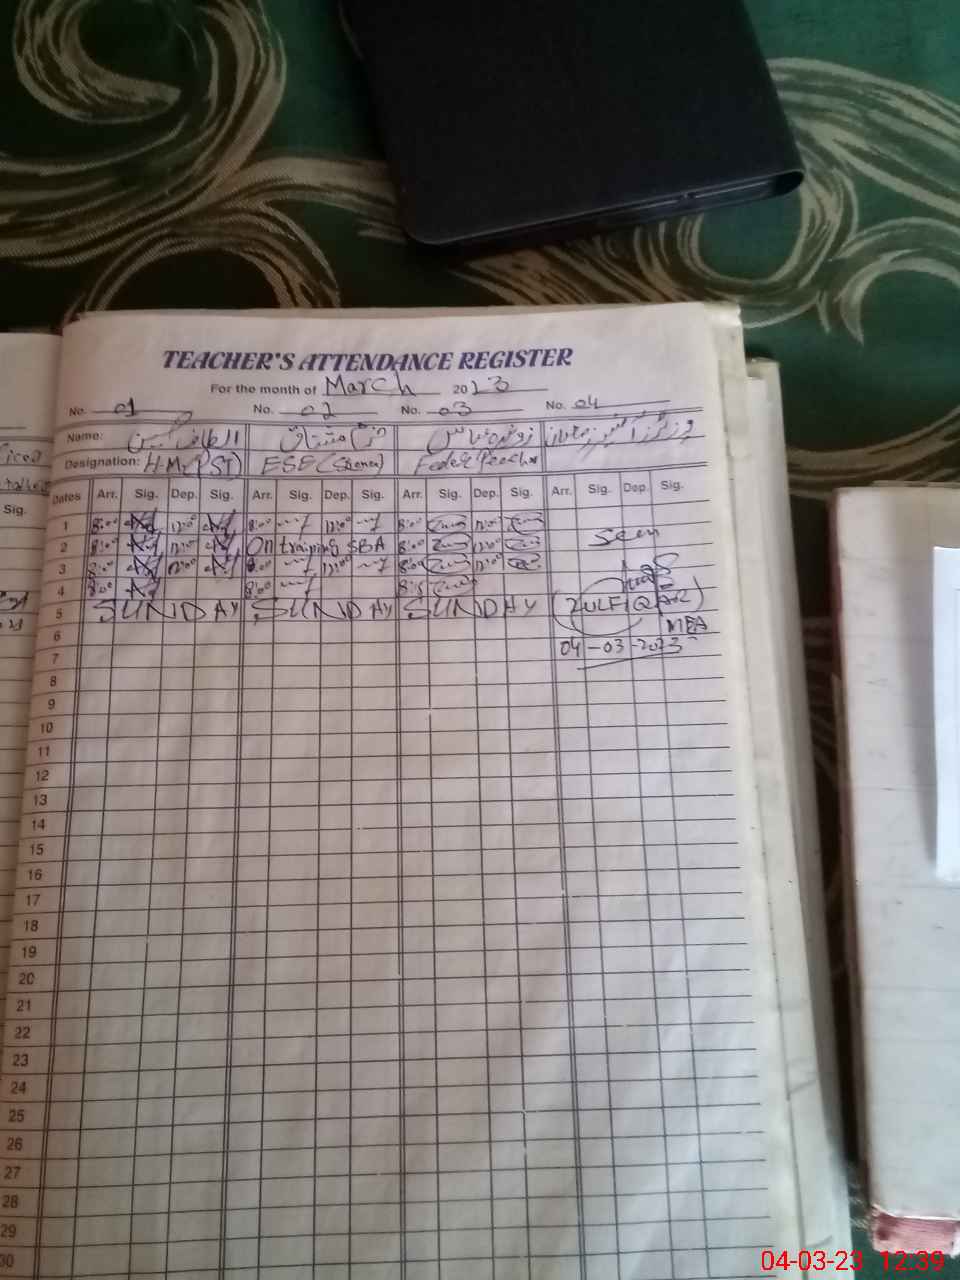 TEACHER'S ATTENDANCE REGISTER
For the month of March 2023
No. 01 No. 02 No. 03 No. 04
Name: الطاف
Designation: H.M(PST) ESE(Science)
Dates Arr. Sig. Dep. Sig. Arr. Sig. Dep. Sig. Arr. Sig. Dep. Sig. Arr. Sig. Dep. Sig.
Sig.
1 8:00 12:00 8:00 12:00 8:00 12:00
2 8:00 12:00 On training SBA 8:00 12:00 Seen
3 8:00 12:00 8:00 12:00 8:00 12:00
4 8:00 8:00 8:15
5 SUNDAY SUNDAY SUNDAY (ZULFIQAR)
6 MEA
7 04-03-2023
8
9
10
11
12
13
14
15
16
17
18
19
20
21
22
23
24
25
26
27
28
29
30
04-03-23 12:39